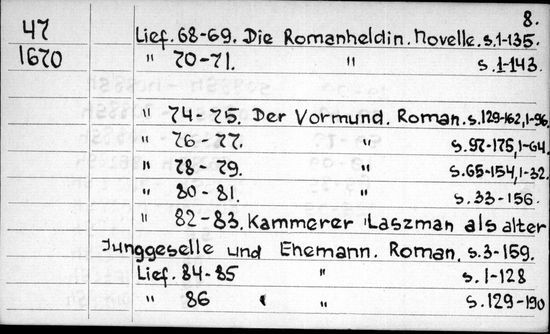 8.
47 Lief. 68-69. Die Romanheldin. Novelle. s.1-135.
1670 " 70-71. " s.1-143.
" 74-75. Der Vormund. Roman. s.129-162,1-96.
" 76-77. " s.97-175,1-64.
" 78-79. " s.65-154,1-32.
" 80-81. " s.33-156.
" 82-83. Kammerer Laszman als alter
Junggeselle und Ehemann. Roman. s.3-159.
Lief. 84-85 " s.1-128
" 86 " s.129-190